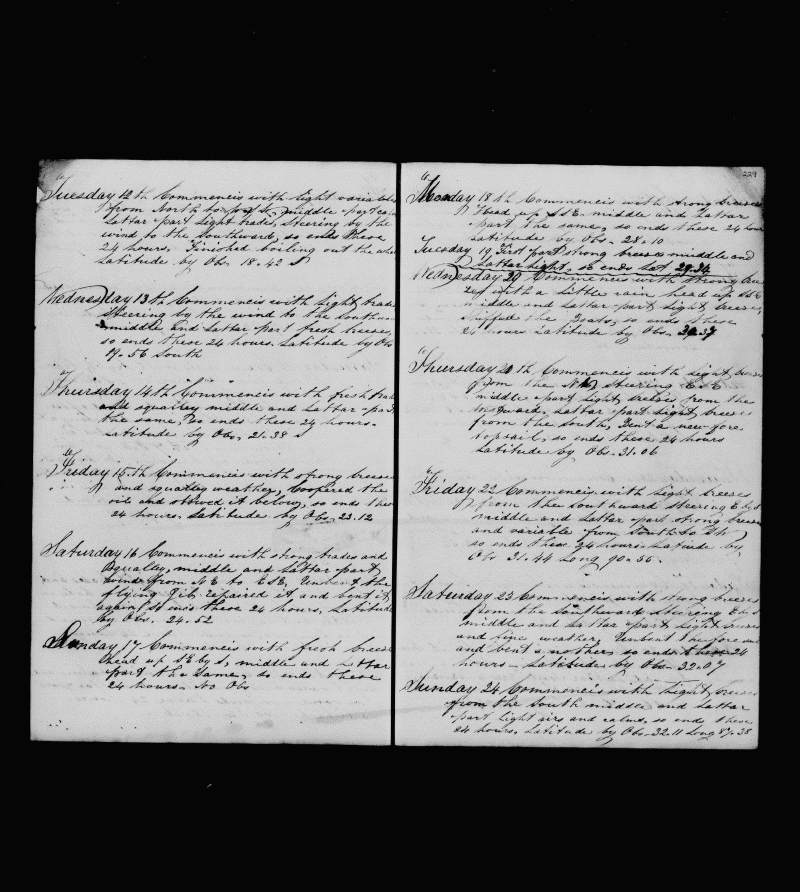 Tuesday 12th Commencis with light variables
from North to middle part calm
Lattar part light trades, steering by the
wind to the southward, so ends these
24 hours. Finished boiling out the whale
Latitude by Obs. 18.42 S
Wednesday 13th Commencis with light trades
steering by the wind to the south
middle and Lattar part fresh breezes,
so ends these 24 hours. Latitude by Obs
19.56 South
Thursday 14th Commencis with fresh trades
and squalley middle and Lattar part
the same, so ends these 24 hours.
Latitude by Obs. 21.38 S
Friday 15th Commencis with strong breezes
and squalley weather, Coopered the
oil and stowed it below, so ends these
24 hours. Latitude by Obs. 23.12
Saturday 16 Commencis with strong trades and
squalley, middle and Lattar part
winds from NE to ESE, Unbent the
flying Jib repaired it and bent it
again, so ends these 24 hours, Latitude
by Obs. 24.52
Sunday 17 Commencis with fresh breezes
head up SE by S, middle and Lattar
part the same, so ends these
24 hours. No Obs
229
Monday 18th Commencis with strong breezes
Head up SSE. middle and Lattar
part the same, so ends these 24 hours
Latitude by Obs. 28.10
Tuesday 19 First part strong breezes middle and
Lattar light, so ends Lat 29.34
Wednesday 20 Commencis with strong
with a little rain head up SSE
middle and Lattar part light breezes,
shifted the boats, so ends these
24 hours Latitude by Obs. 30.37
Thursday 20th Commencis with light breezes
from the NW steering ESE
middle part light breezes from the
Lattar part light breezes
from the south, Bent a new fore
topsail, so ends these 24 hours
Latitude by Obs. 31.06
Friday 22 Commencis with light breezes
from the southward steering E by S
middle and Lattar part strong breezes
and variable from South to
so ends these 24 hours. Latitude by
Obs 31.44 Long 90.55
Saturday 23 Commencis with strong breezes
from the Southward steering E by S
middle and Lattar part light breezes
and fine weather, Unbent the fore
and bent another, so ends these 24
hours - Latitude by Obs. 32.07
Sunday 24 Commencis with Light breezes
from the South middle and Lattar
part light airs and calms, so ends these
24 hours. Latitude by Obs. 32.11 Long 87.38